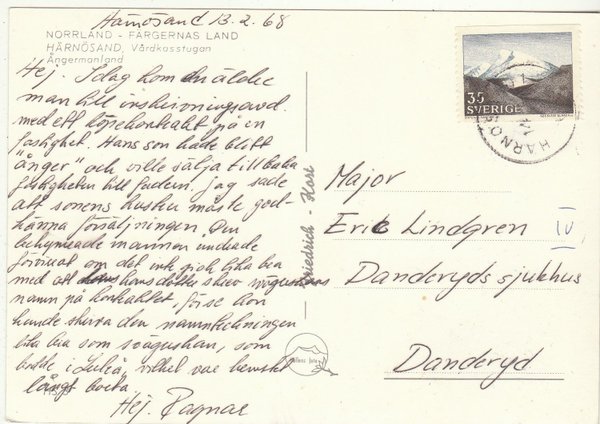 Härnösand 13.2.68
NORRLAND - FÄRGERNAS LAND
HÄRNÖSAND, Vårdkasstugan
Ångermanland
Hej. Idag kom en äldre
man till inskrivningsavd.
med ett köpekontrakt på en
fastighet. Hans son hade blitt
"ånger" och ville sälja tillbaka
fastigheten till fadern. Jag sade
att sonens hustru måste god-
känna försäljningen. Den
bekymrade mannen undrade
försynt om det inte gick lika bra
med att hans dotter skrev svägerskans
namn på kontraktet, för se hon
kunde skriva den namnteckningen
lika bra som svägerskan, som
bodde i Luleå, vilket var hemskt
långt borta.
Hej. Ragnar
35
SVERIGE
HÄRNÖ
Major
Eric Lindgren IV
Danderyds sjukhus
Danderyd
Friedrich - Kort